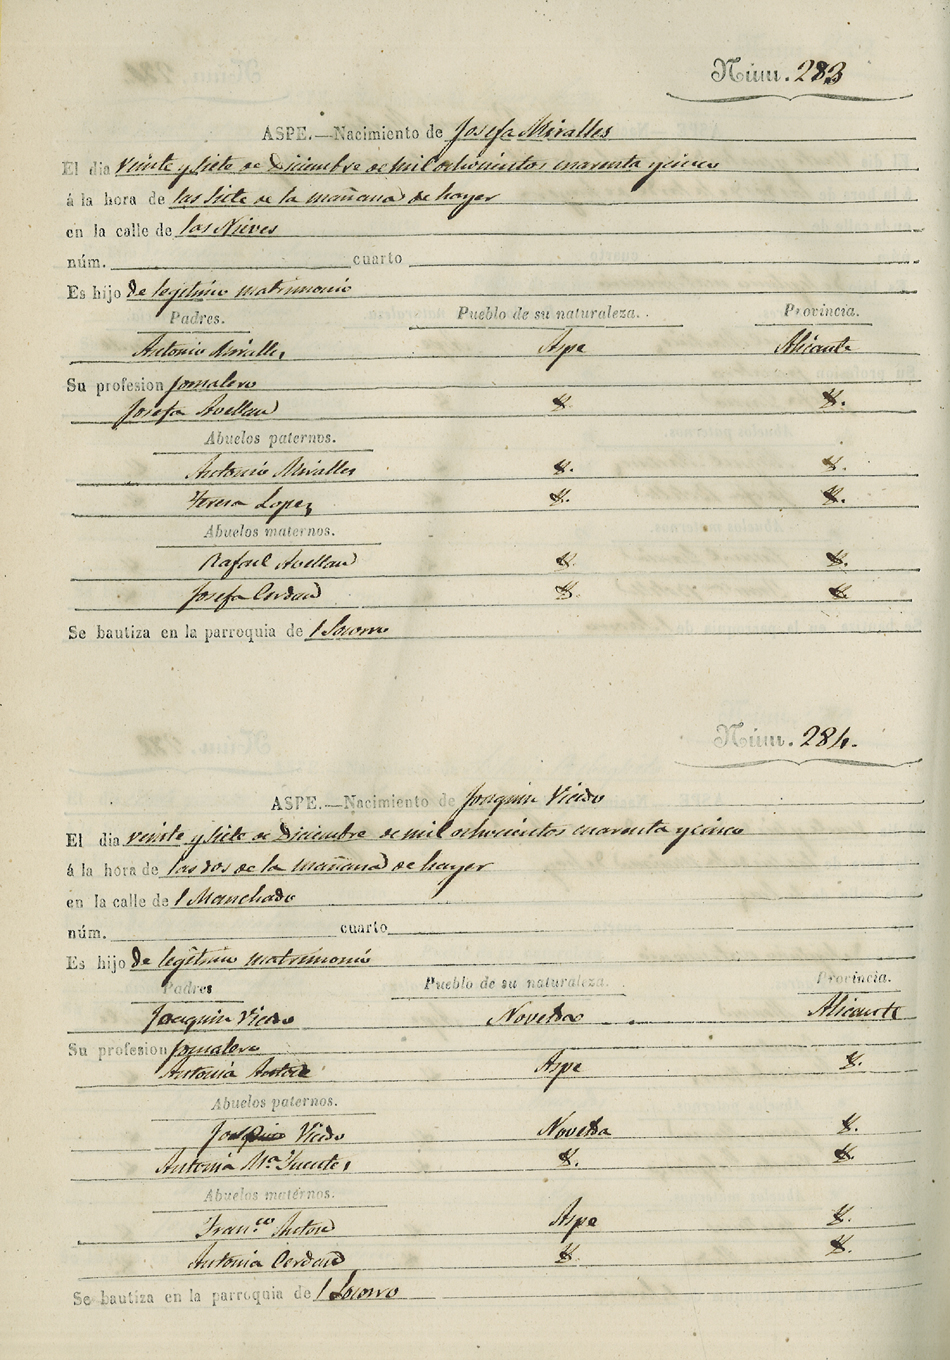 Núm. 283
ASPE.—Nacimiento de Josefa Miralles
El dia veinte y siete de Diciembre de mil ochocientos cuarenta y cinco
á la hora de las siete de la mañana de hayer
en la calle de las Nieves
núm. cuarto
Es hijo de legitimo matrimonio
Padres. Pueblo de su naturaleza. Provincia.
Antonio Miralles Aspe Alicante
Su profesion Jornalero
Josefa Avellan
Abuelos paternos.
Antonio Miralles
Teresa Lopez
Abuelos maternos.
Rafael Avellan
Josefa Cerdan
Se bautiza en la parroquia de l Socorro
Núm. 284.
ASPE.—Nacimiento de Joaquin Vicedo
El dia veinte y siete de Diciembre de mil ochocientos cuarenta y cinco
á la hora de las dos de la mañana de hayer
en la calle de l Manchado
núm. cuarto
Es hijo de legitimo matrimonio
Padres Pueblo de su naturaleza. Provincia.
Joaquin Vicedo Novelda Alicante
Su profesion Jornalero
Antonia Aspe
Abuelos paternos.
Joaquin Vicedo Novelda
Antonia Mª Fuentes
Abuelos matérnos.
Fran.co Anton Aspe
Antonia Cerdan
Se bautiza en la parroquia de l Socorro